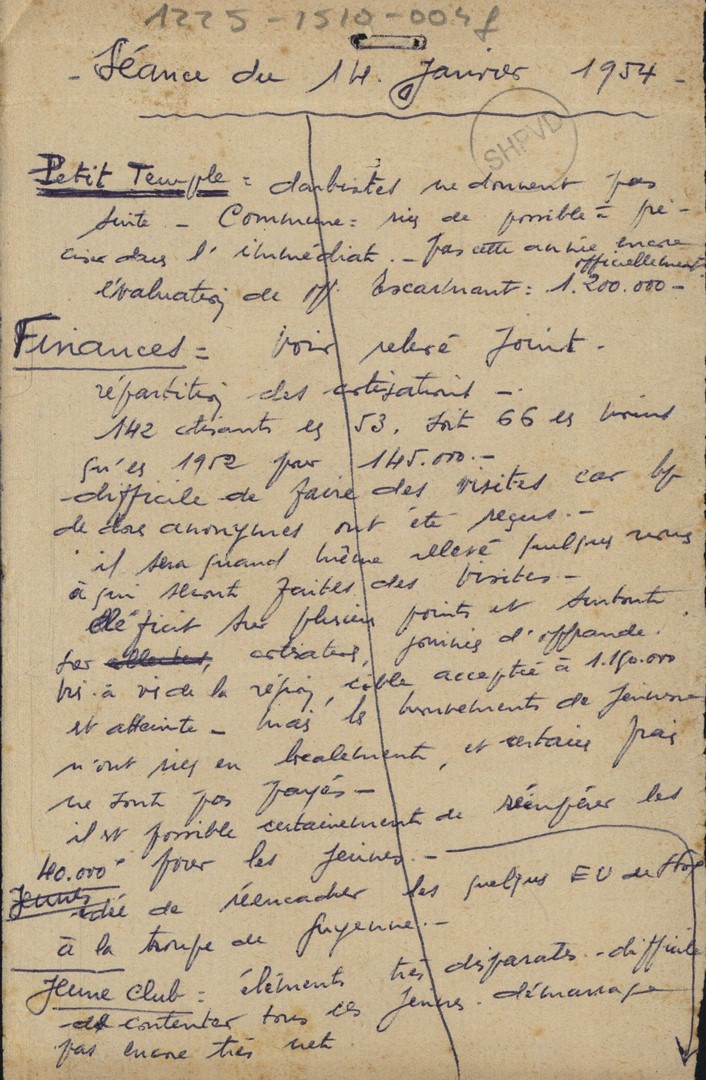 1225-1510-004f
- Séance du 14 Janvier 1954 -
SHPVD
Petit Temple = darbistes ne donnent pas
suite - Commune = rien de possible à pré-
ciser dans l'immédiat. - pas cette année encore
officiellement
évaluation de off. Escarmant : 1.200.000 -
Finances = voir relevé joint -
répartition des cotisations -
142 cotisants en 53, soit 66 en moins
qu'en 1952 pour 145.000. -
difficile de faire des visites car bp
de dons anonymes ont été reçus. -
il sera quand même relevé quelques noms
à qui seront faites des visites -
déficit sur plusieurs points et surtout
sur collectes, cotisations, journées d'offrande.
vis à vis de la région, cible acceptée à 1.150.000
est atteinte - mais les mouvements de jeunesse
n'ont rien eu localement, et certains frais
ne sont pas payés -
il est possible certainement de récupérer les
40.000 pour les jeunes. -
Jeunes
idée de réencadrer les quelques EU de
à la troupe de Guyenne. -
Jeune Club = éléments très disparates - difficile
de contenter tous ces jeunes - démarrage
pas encore très net